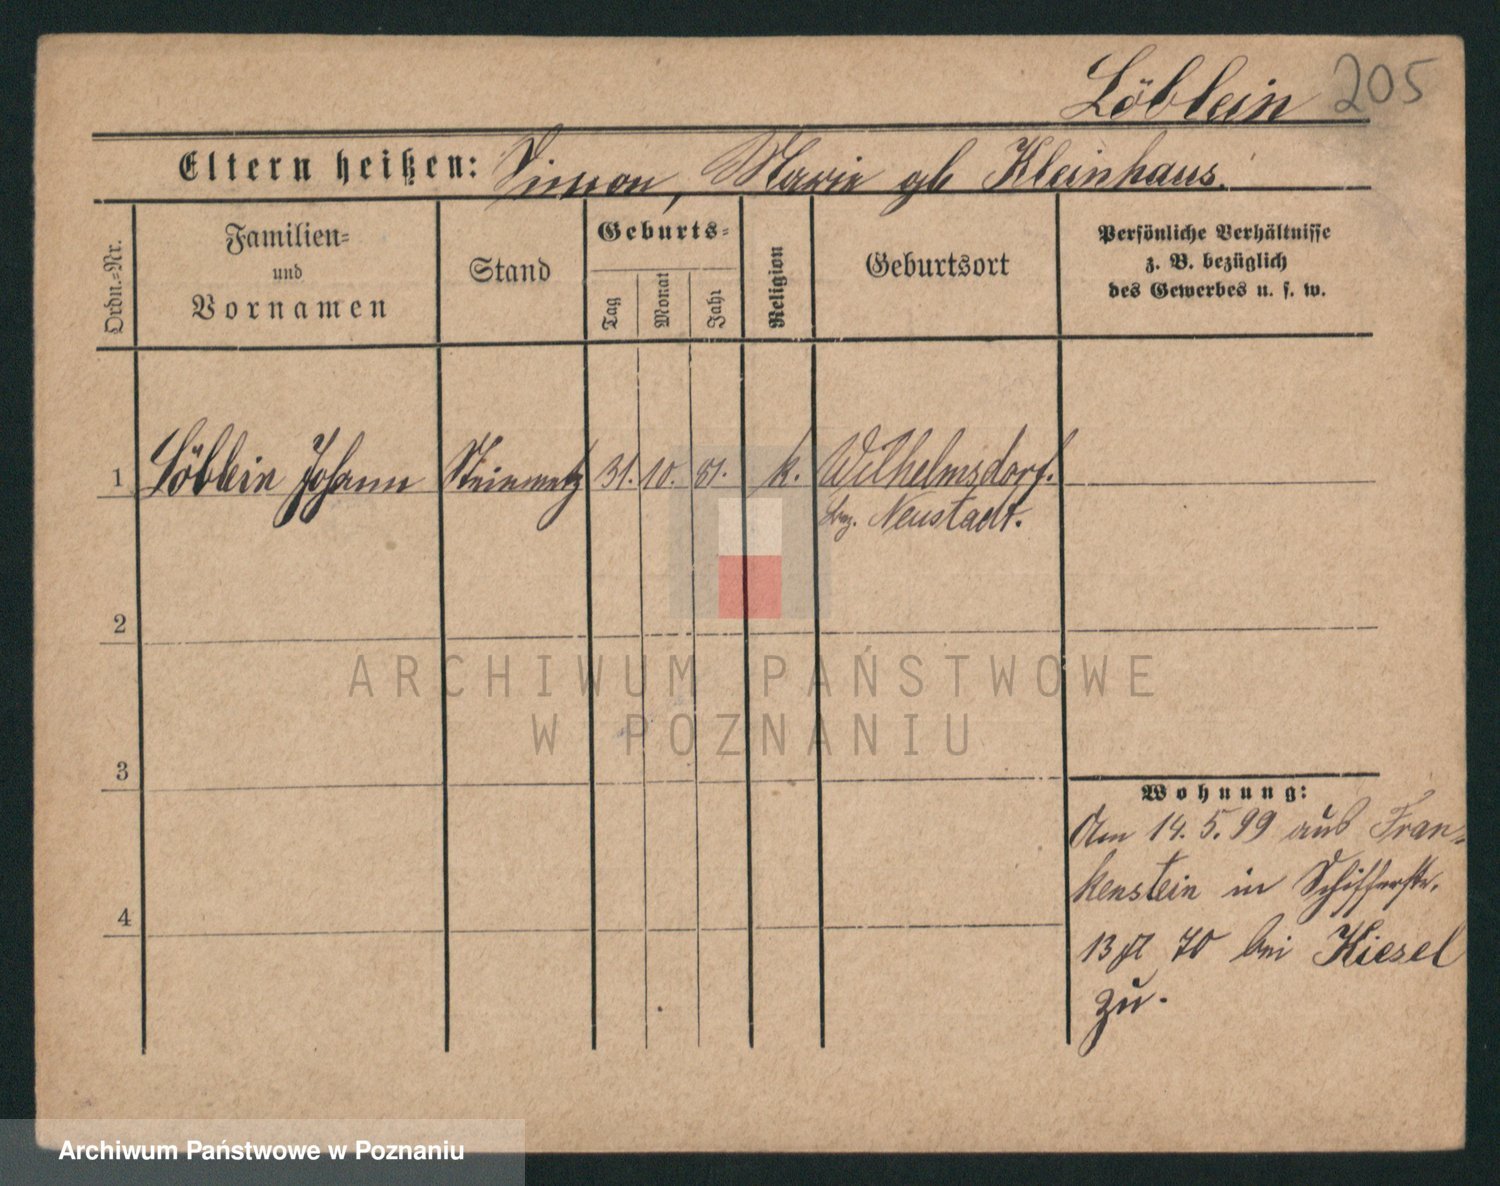 Löblein 205
Eltern heißen: Simon, Marie gb Kleinhaus.
Ordn.=Nr.
Familien=
und
Vornamen
Stand
Geburts=
Tag
Monat
Jahr
Religion
Geburtsort
Persönliche Verhältnisse
z. B. bezüglich
des Gewerbes u. s. w.
1 Löblein Johann Steinmetz 31. 10. 81. k. Wilhelmsdorf.
Neustadt.
2
3
4
Wohnung:
Am 14. 5. 99 aus Fran-
kenstein in Schifferstr.
13 70 bei Kiesel
zu.
ARCHIWUM PAŃSTWOWE
W POZNANIU
Archiwum Państwowe w Poznaniu